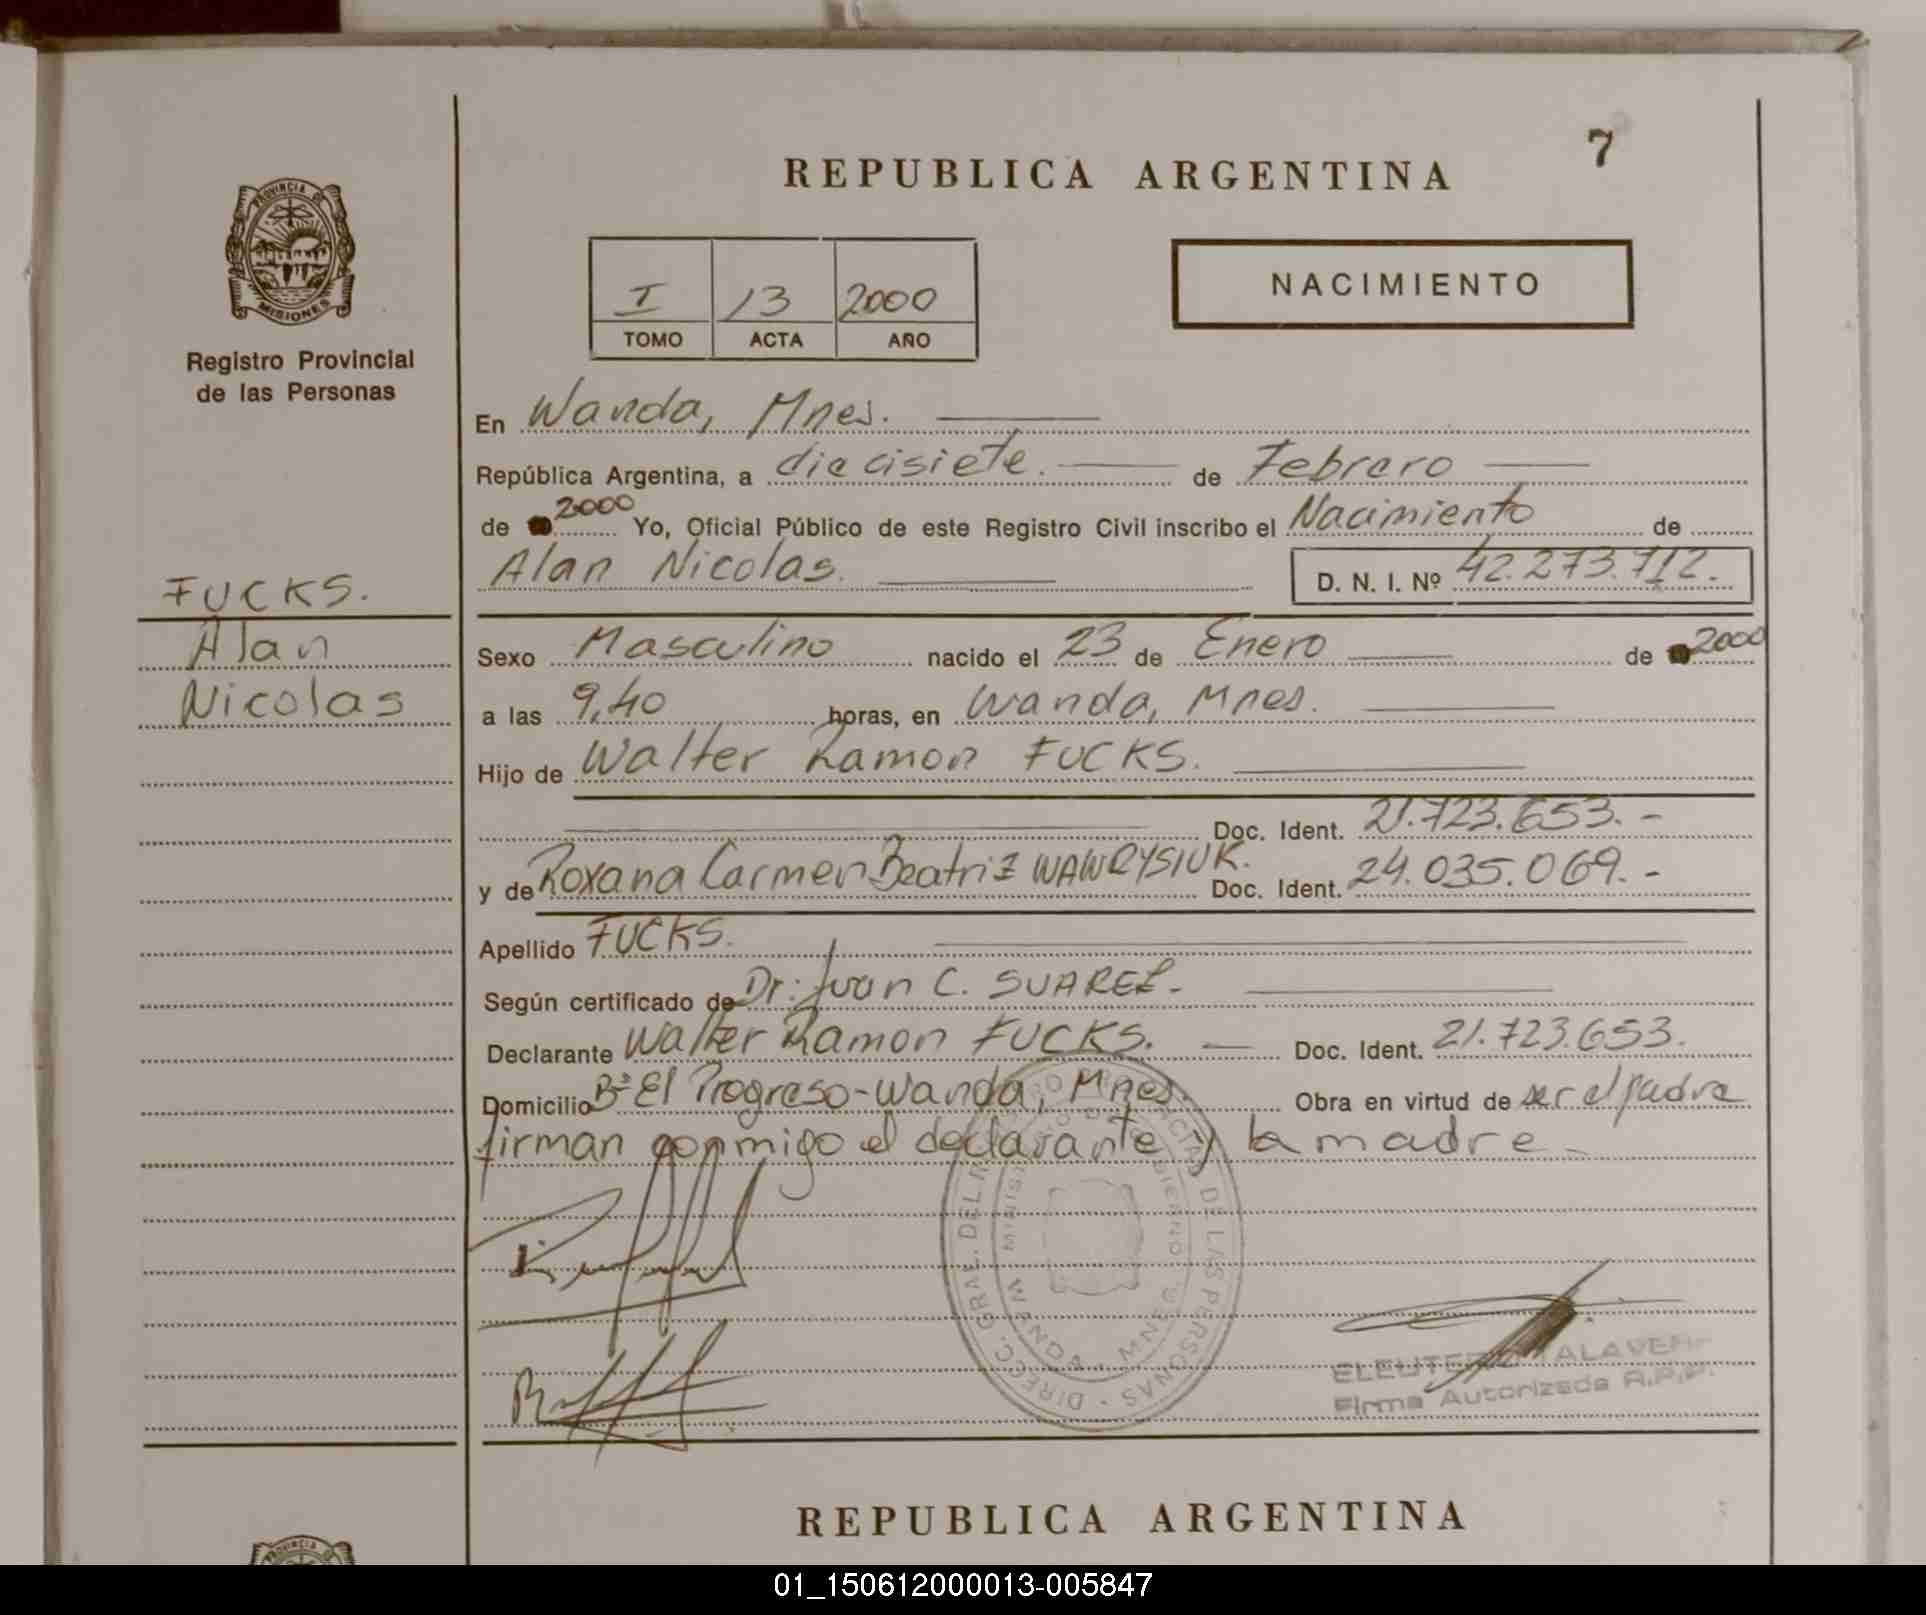 7
REPUBLICA ARGENTINA
PROVINCIA DE
MISIONES
Registro Provincial
de las Personas
NACIMIENTO
I 13 2000
TOMO ACTA AÑO
En Wanda, Mnes.
República Argentina, a diecisiete. de Febrero
de 2000 Yo, Oficial Público de este Registro Civil inscribo el Nacimiento de
Alan Nicolas. D. N. I. Nº 42.273.712.
FUCKS.
Alan
Nicolas
Sexo Masculino nacido el 23 de Enero de 2000
a las 9,40 horas, en Wanda, Mnes.
Hijo de Walter Ramon FUCKS.
Doc. Ident. 21.723.653.-
y de Roxana Carmen Beatriz WAWRYSIUK. Doc. Ident. 24.035.069.-
Apellido FUCKS.
Según certificado de Dr. Juan C. SUAREZ.-
Declarante Walter Ramon FUCKS. Doc. Ident. 21.723.653.
Domicilio Bº El Progreso-Wanda, Mnes. Obra en virtud de ser el padre
firman conmigo el declarante y la madre.
DIREC. GRAL. DEL DE LAS PERSONAS
WANDA - MNES.
Firma Autorizada R.P.P.
REPUBLICA ARGENTINA
PROVINCIA DE
01_150612000013-005847